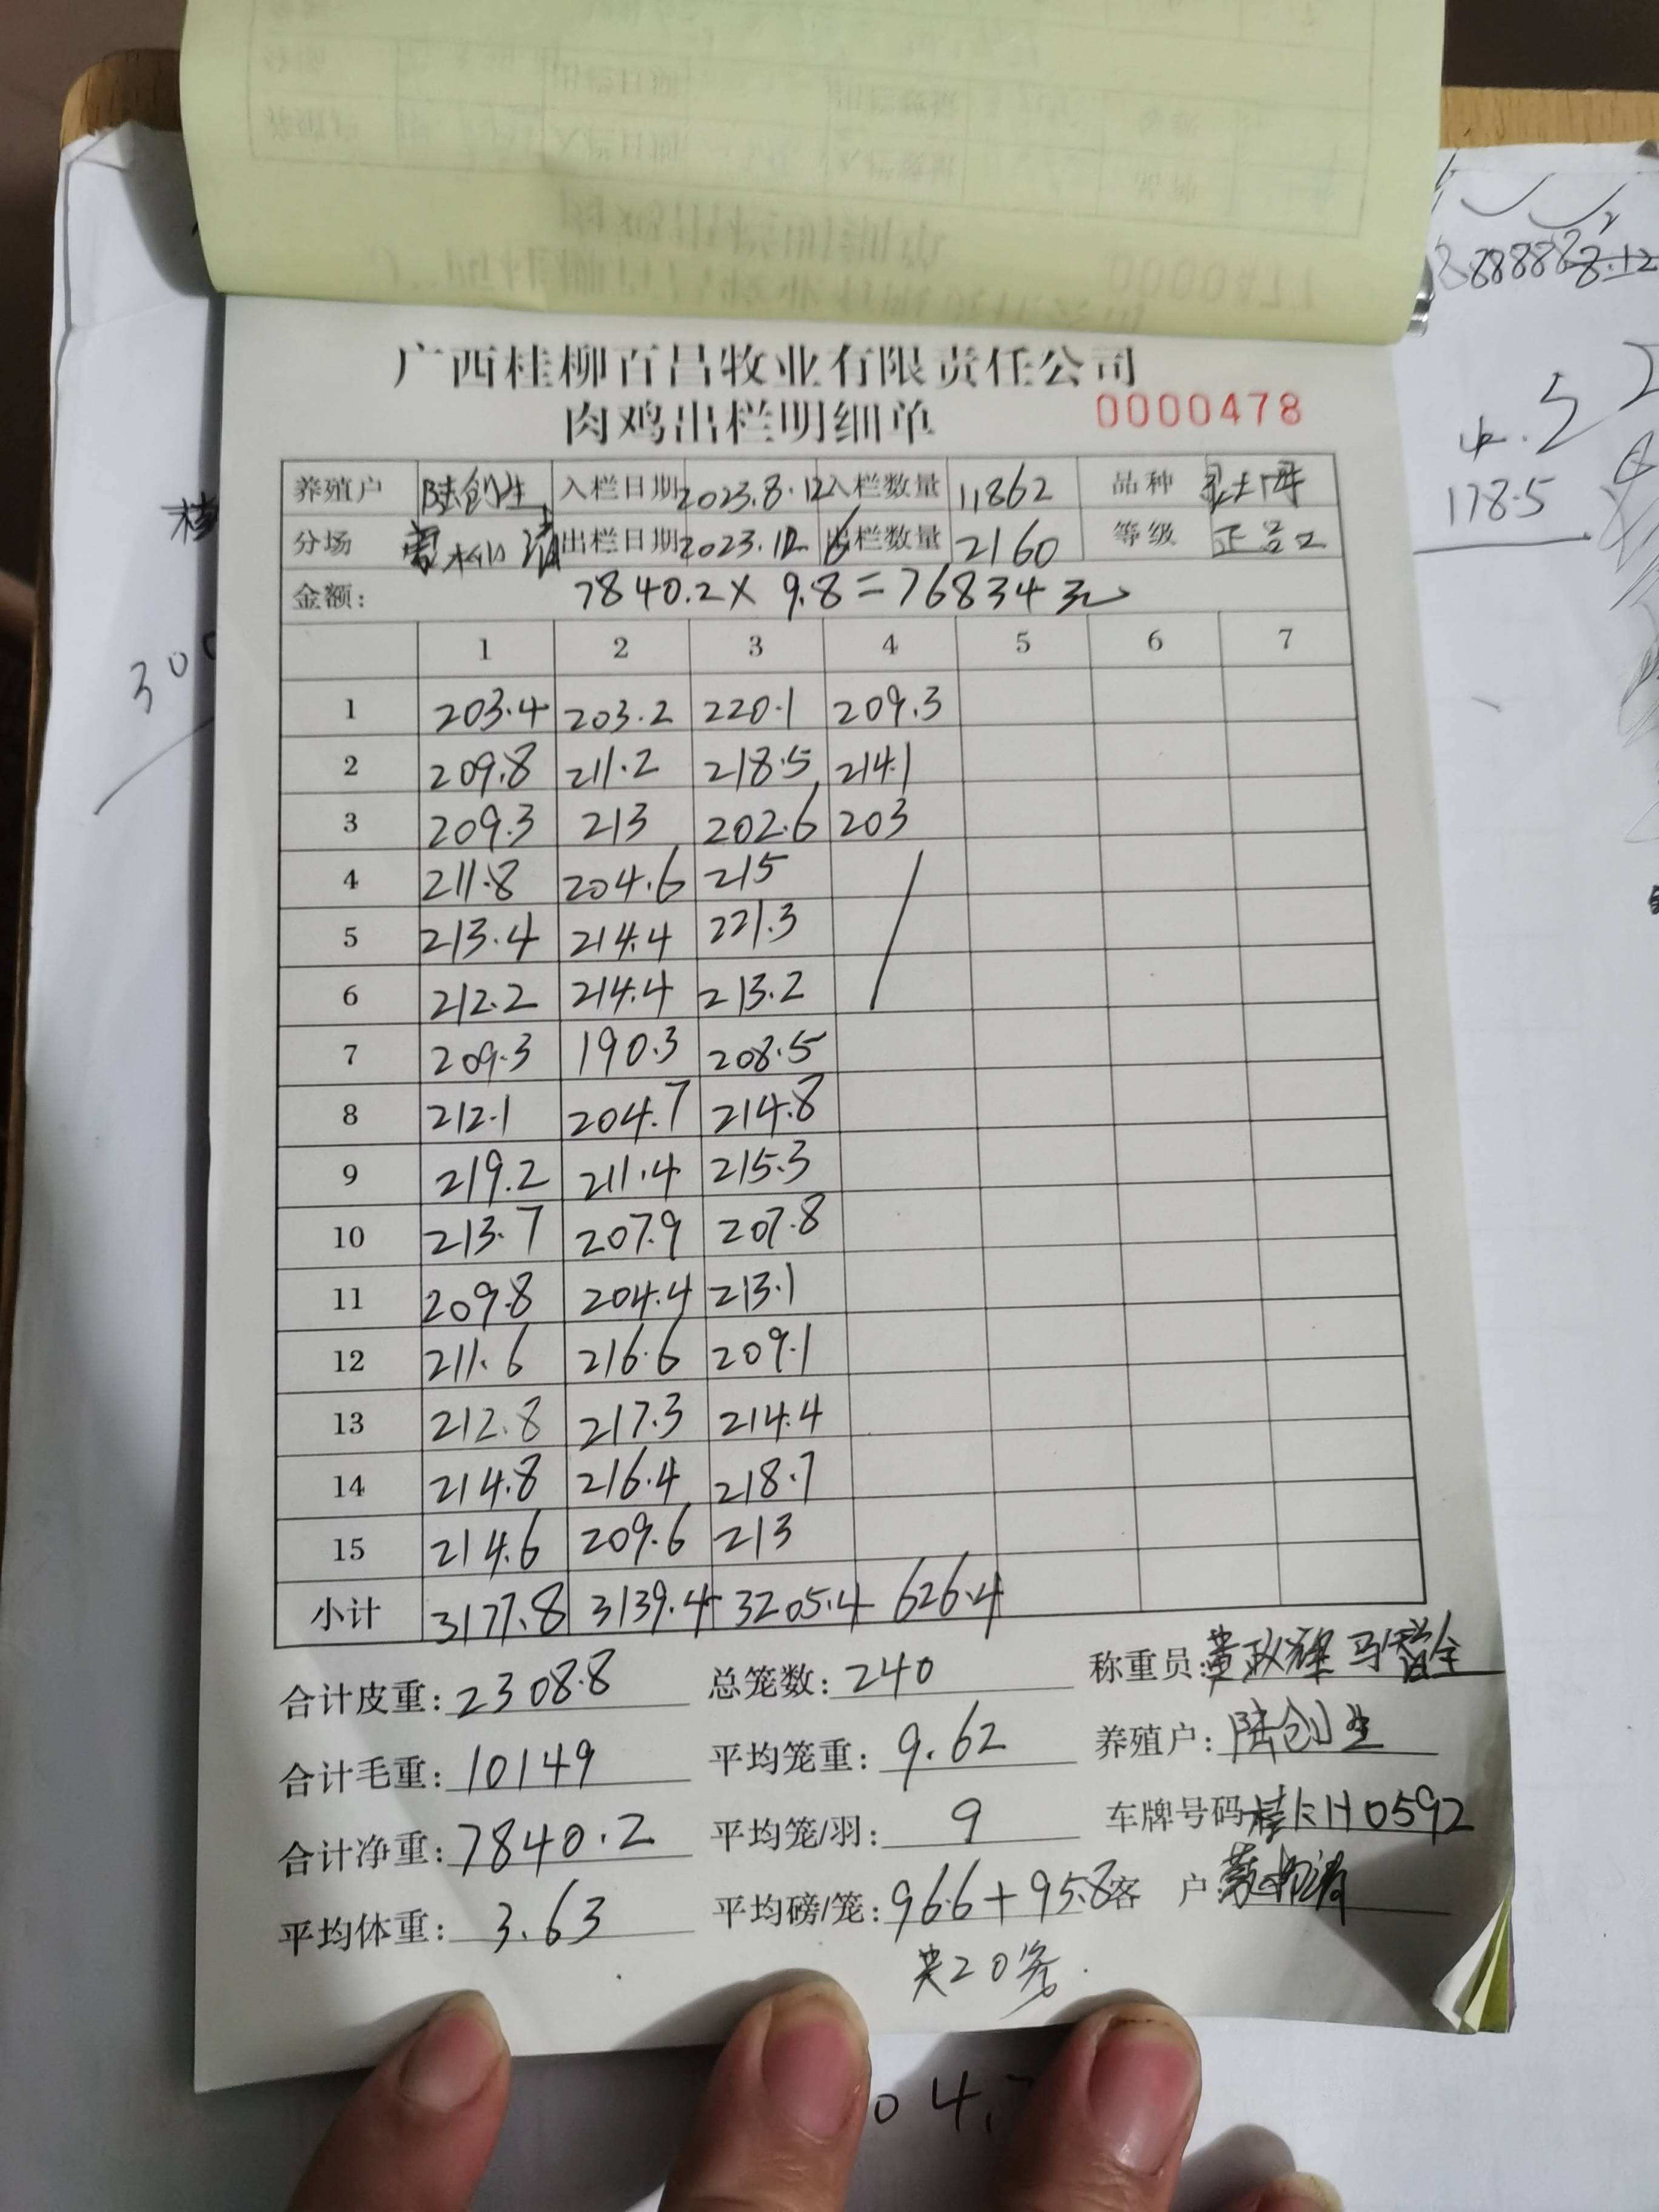 广西桂柳百昌牧业有限责任公司
肉鸡出栏明细单 0000478
养殖户 陆创生 入栏日期 2023.8.12 入栏数量 11862 品种
分场 出栏日期 2023.12.6 出栏数量 2160 等级 正品
金额: 7840.2×9.8=76834元
1 2 3 4 5 6 7
1 203.4 203.2 220.1 209.3
2 209.8 211.2 218.5 214.1
3 209.3 213 202.6 203
4 211.8 204.6 215
5 213.4 214.4 221.3
6 212.2 214.4 213.2
7 209.3 190.3 208.5
8 212.1 204.7 214.8
9 219.2 211.4 215.3
10 213.7 207.9 207.8
11 209.8 204.4 213.1
12 211.6 216.6 209.1
13 212.8 217.3 214.4
14 214.8 216.4 218.7
15 214.6 209.6 213
小计 3177.8 3139.4 3205.4 626.4
合计皮重: 2308.8 总笼数: 240 称重员:
合计毛重: 10149 平均笼重: 9.62 养殖户: 陆创生
合计净重: 7840.2 平均笼/羽: 9 车牌号码 H0592
平均体重: 3.63 平均磅/笼: 96.6+95.8 客 户:
共20条
4.5
178.5
300
04.